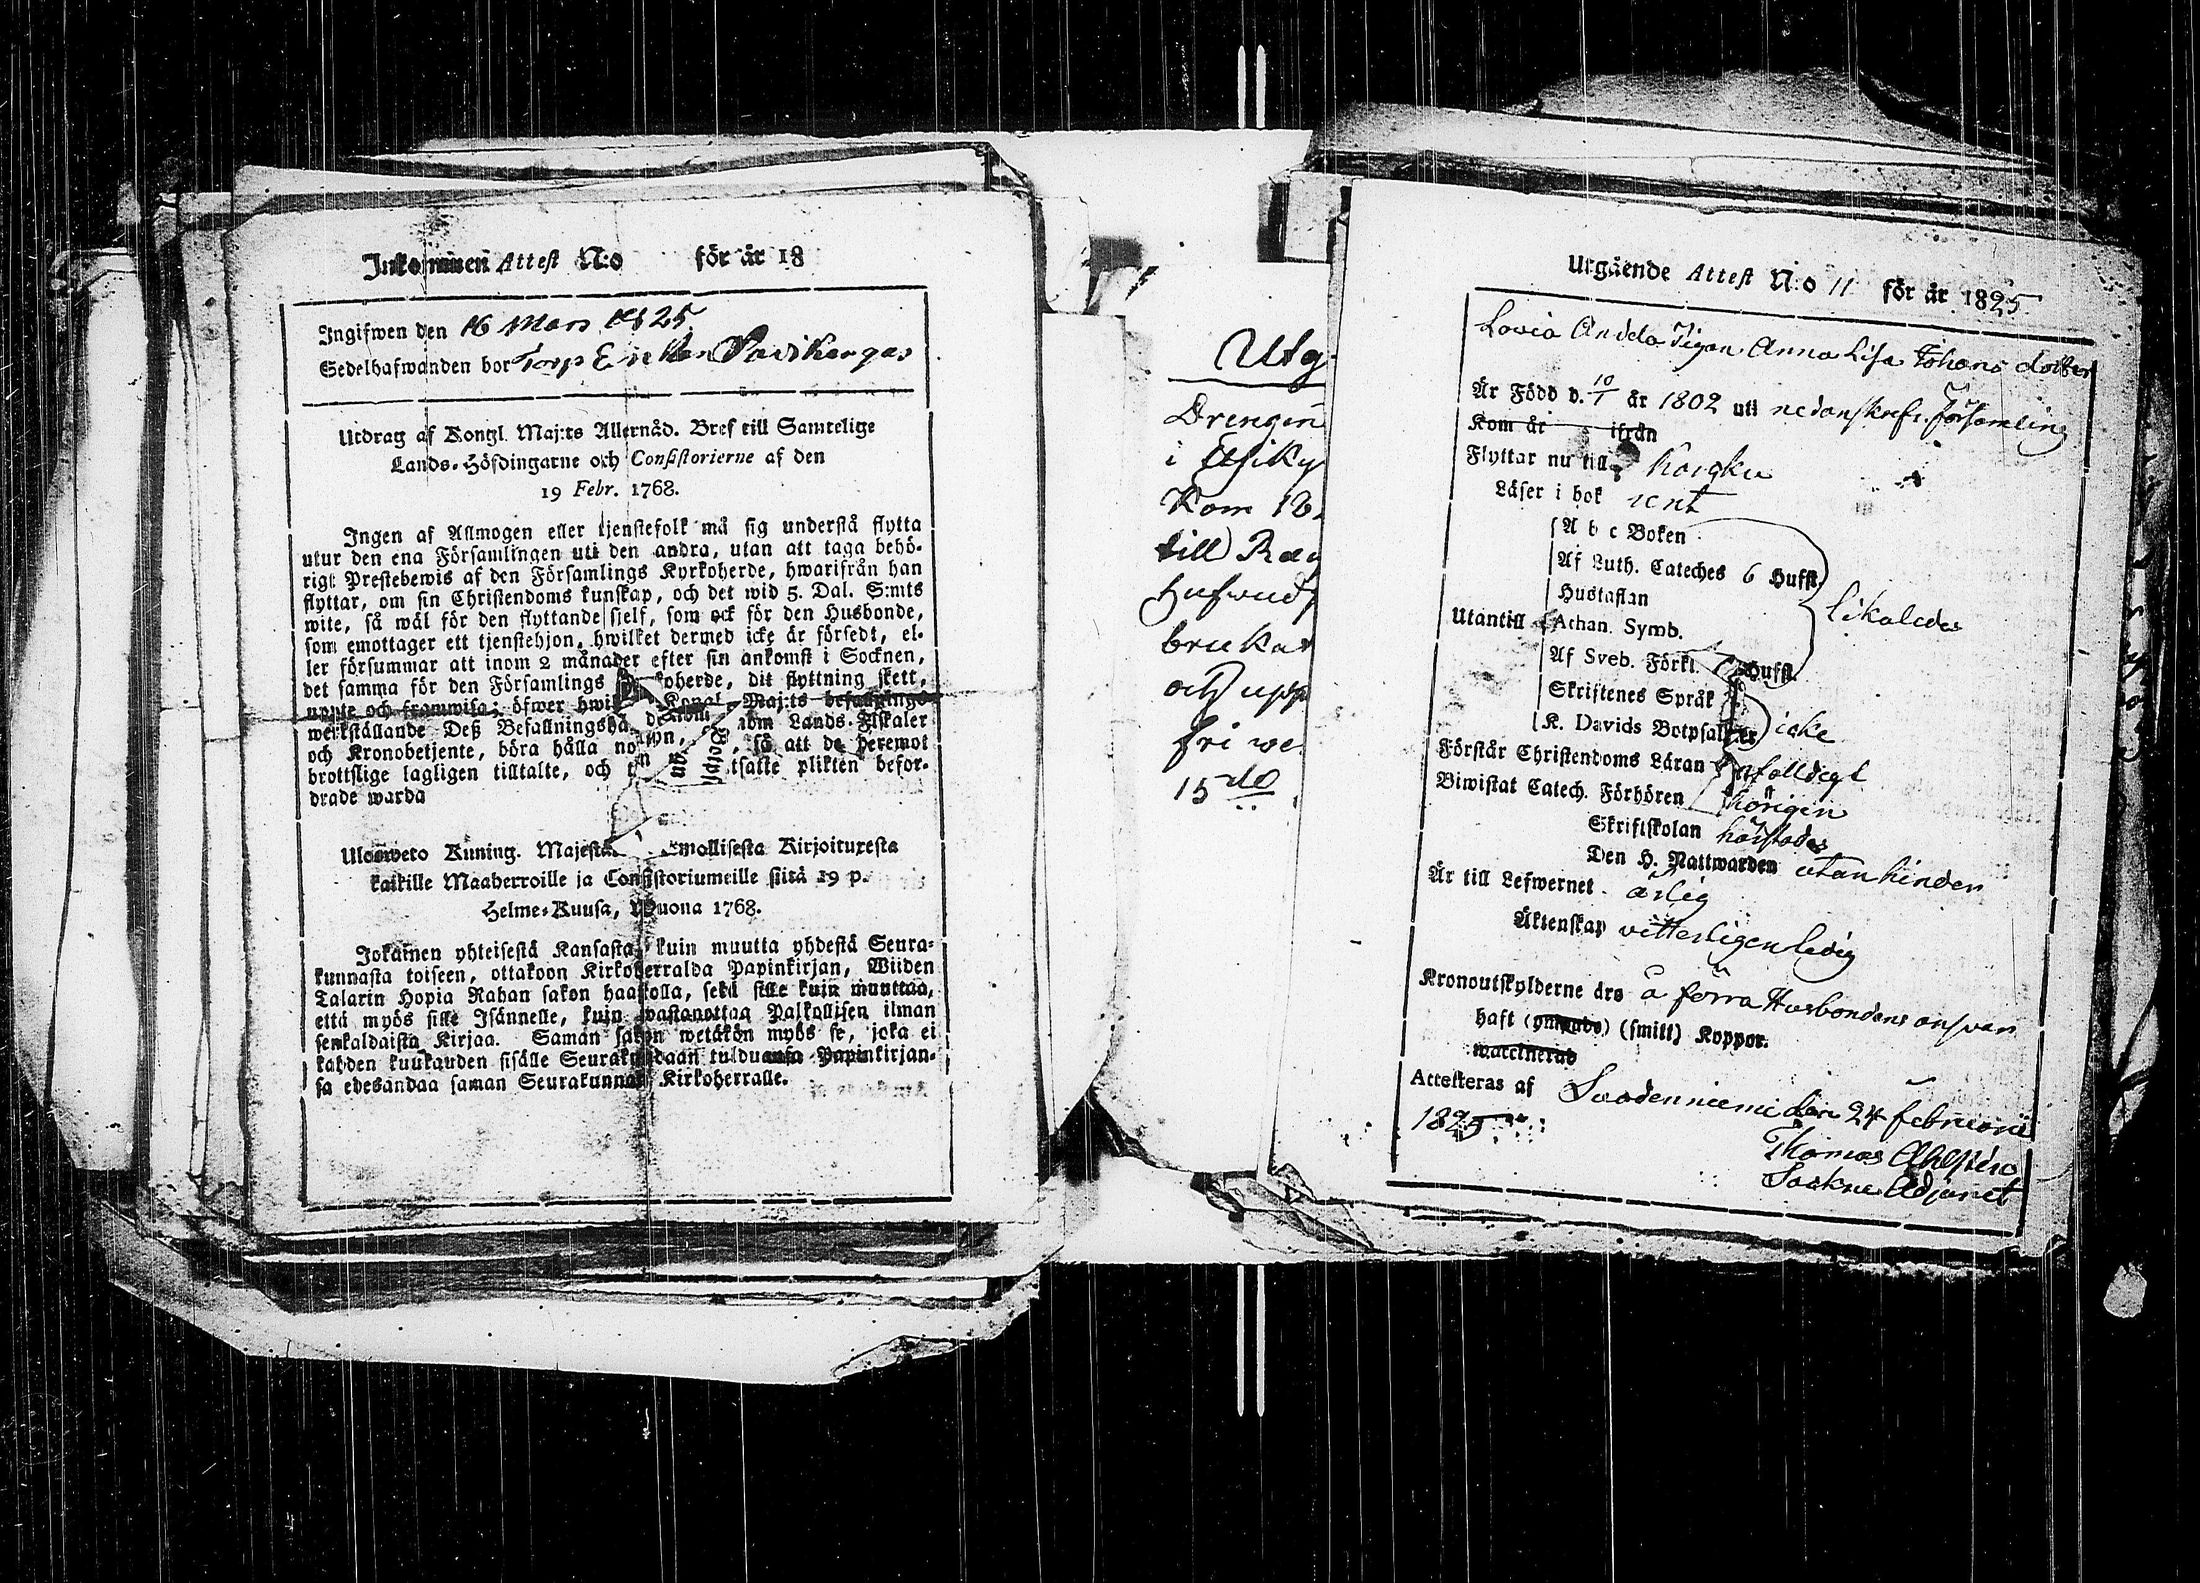 Inkommen Attest N:o för år 18
Ingifwen den 16 Mars 1825.
Sedelhafwanden bor Torp Enkan
Utdrag af Kongl. Maj:ts Allernåd. Bref till Samtelige
Lands-Höfdingarne och Consistorierne af den
19 Febr. 1768.
Ingen af Allmogen eller tjenstefolk må sig understå flytta
utur den ena Församlingen uti den andra, utan att taga behö-
rigt Prestebewis af den Församlings Kyrkoherde, hwarifrån han
flyttar, om sin Christendoms kunskap, och det wid 5. Dal. S:mts
wite, så wäl för den flyttande sjelf, som ock för den Husbonde,
som emottager ett tjenstehjon, hwilket dermed icke är försedt, el-
ler försummar att inom 2 månader efter sin ankomst i Socknen,
det samma för den Församlings oherde, dit flyttning skett,
uppte och framwisa; öfwer hwil Kongl Maj:ts befallnings
werkställande Deß Befallningsha som Lands-Fiskaler
och Kronobetjente, böra hålla no , så att de heremot
brottslige lagligen tilltalte, och tsatte plikten befor-
drade warda
Ulosweto Kuning. Majestä mollisesta Kirjoituresta
kaikille Maaherroille ja Consistoriumeille siitä 19 p.
Helme-Kuusa, Wuona 1768.
Jokainen yhteisestä Kansasta, kuin muutta yhdestä Seura-
kunnasta toiseen, ottakoon Kirkoherralda Papinkirjan, Wiiden
Talarin Hopia Rahan sakon haastolla, sekä sille kuin muuttaa,
että myös sille Isännelle, kuin wastanottaa Palkollisen ilman
senkaldaista Kirjaa. Saman sakon wetäkön myös se, joka ei
kahden kuukauden sisälle Seurakundaan tulduansa Papinkirjan-
sa edesandaa saman Seurakunnan Kirkoherralle.
Utg
Drengen
i
Kom 18
till
Hufwud
brukar
och upp
fri we
15 do
Utgående Attest N:o 11 för år 1825.
Lovia Andela Pigan Anna Lisa Johans dotter
Är Född d. 10/1 år 1802 uti nedanskrefr. församling
Kom år ifrån
Flyttar nu till Karyku
Läser i bok rent
A b c Boken
Af Luth. Cateches 6 Hufst.
Hustaflan
Utantill Athan. Symb. likaledes
Af Sveb. Förkl. Hufst.
Skriftenes Språk
K. Davids Botpsalmer icke
Förstår Christendoms Läran enfalldigt
Biwistat Catech. Förhören hörigen
Skriftskolan
Den H. Nattwarden utan hinder
Är till Lefwernet ärlig
Äktenskap vitterligen ledig
Kronoutskylderne dro å förra Husbondens answar
Haft (smitt) Koppor.
waccinerad
Attesteras af Svodenniemi den 24 februarii
1825
Thomas
Sockne Adjunct